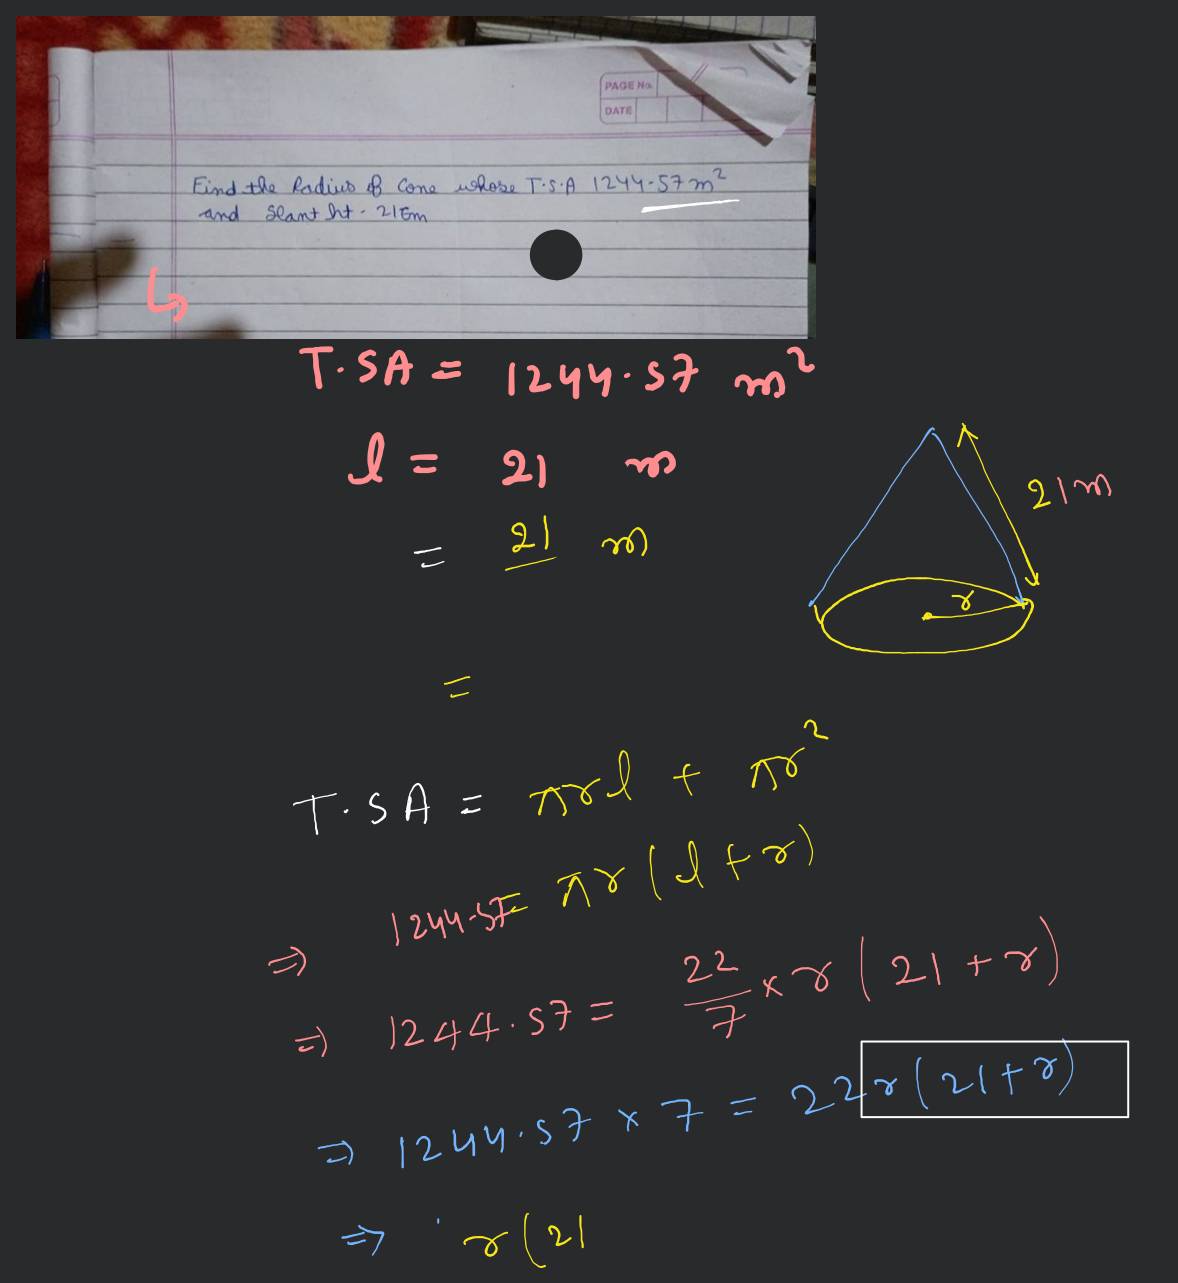 PAGE No.
DATE
Find the Radius of Cone whose T.S.A 1244.57 m²
and Slant ht - 21 m
T.SA = 1244.57 m²
l = 21 m
= 21 m
21m
r
=
T.SA = πrl + πr²
⇒ 1244.57 = πr(l+r)
⇒ 1244.57 = 22/7 × r (21+r)
⇒ 1244.57 × 7 = 22r(21+r)
⇒ r(21